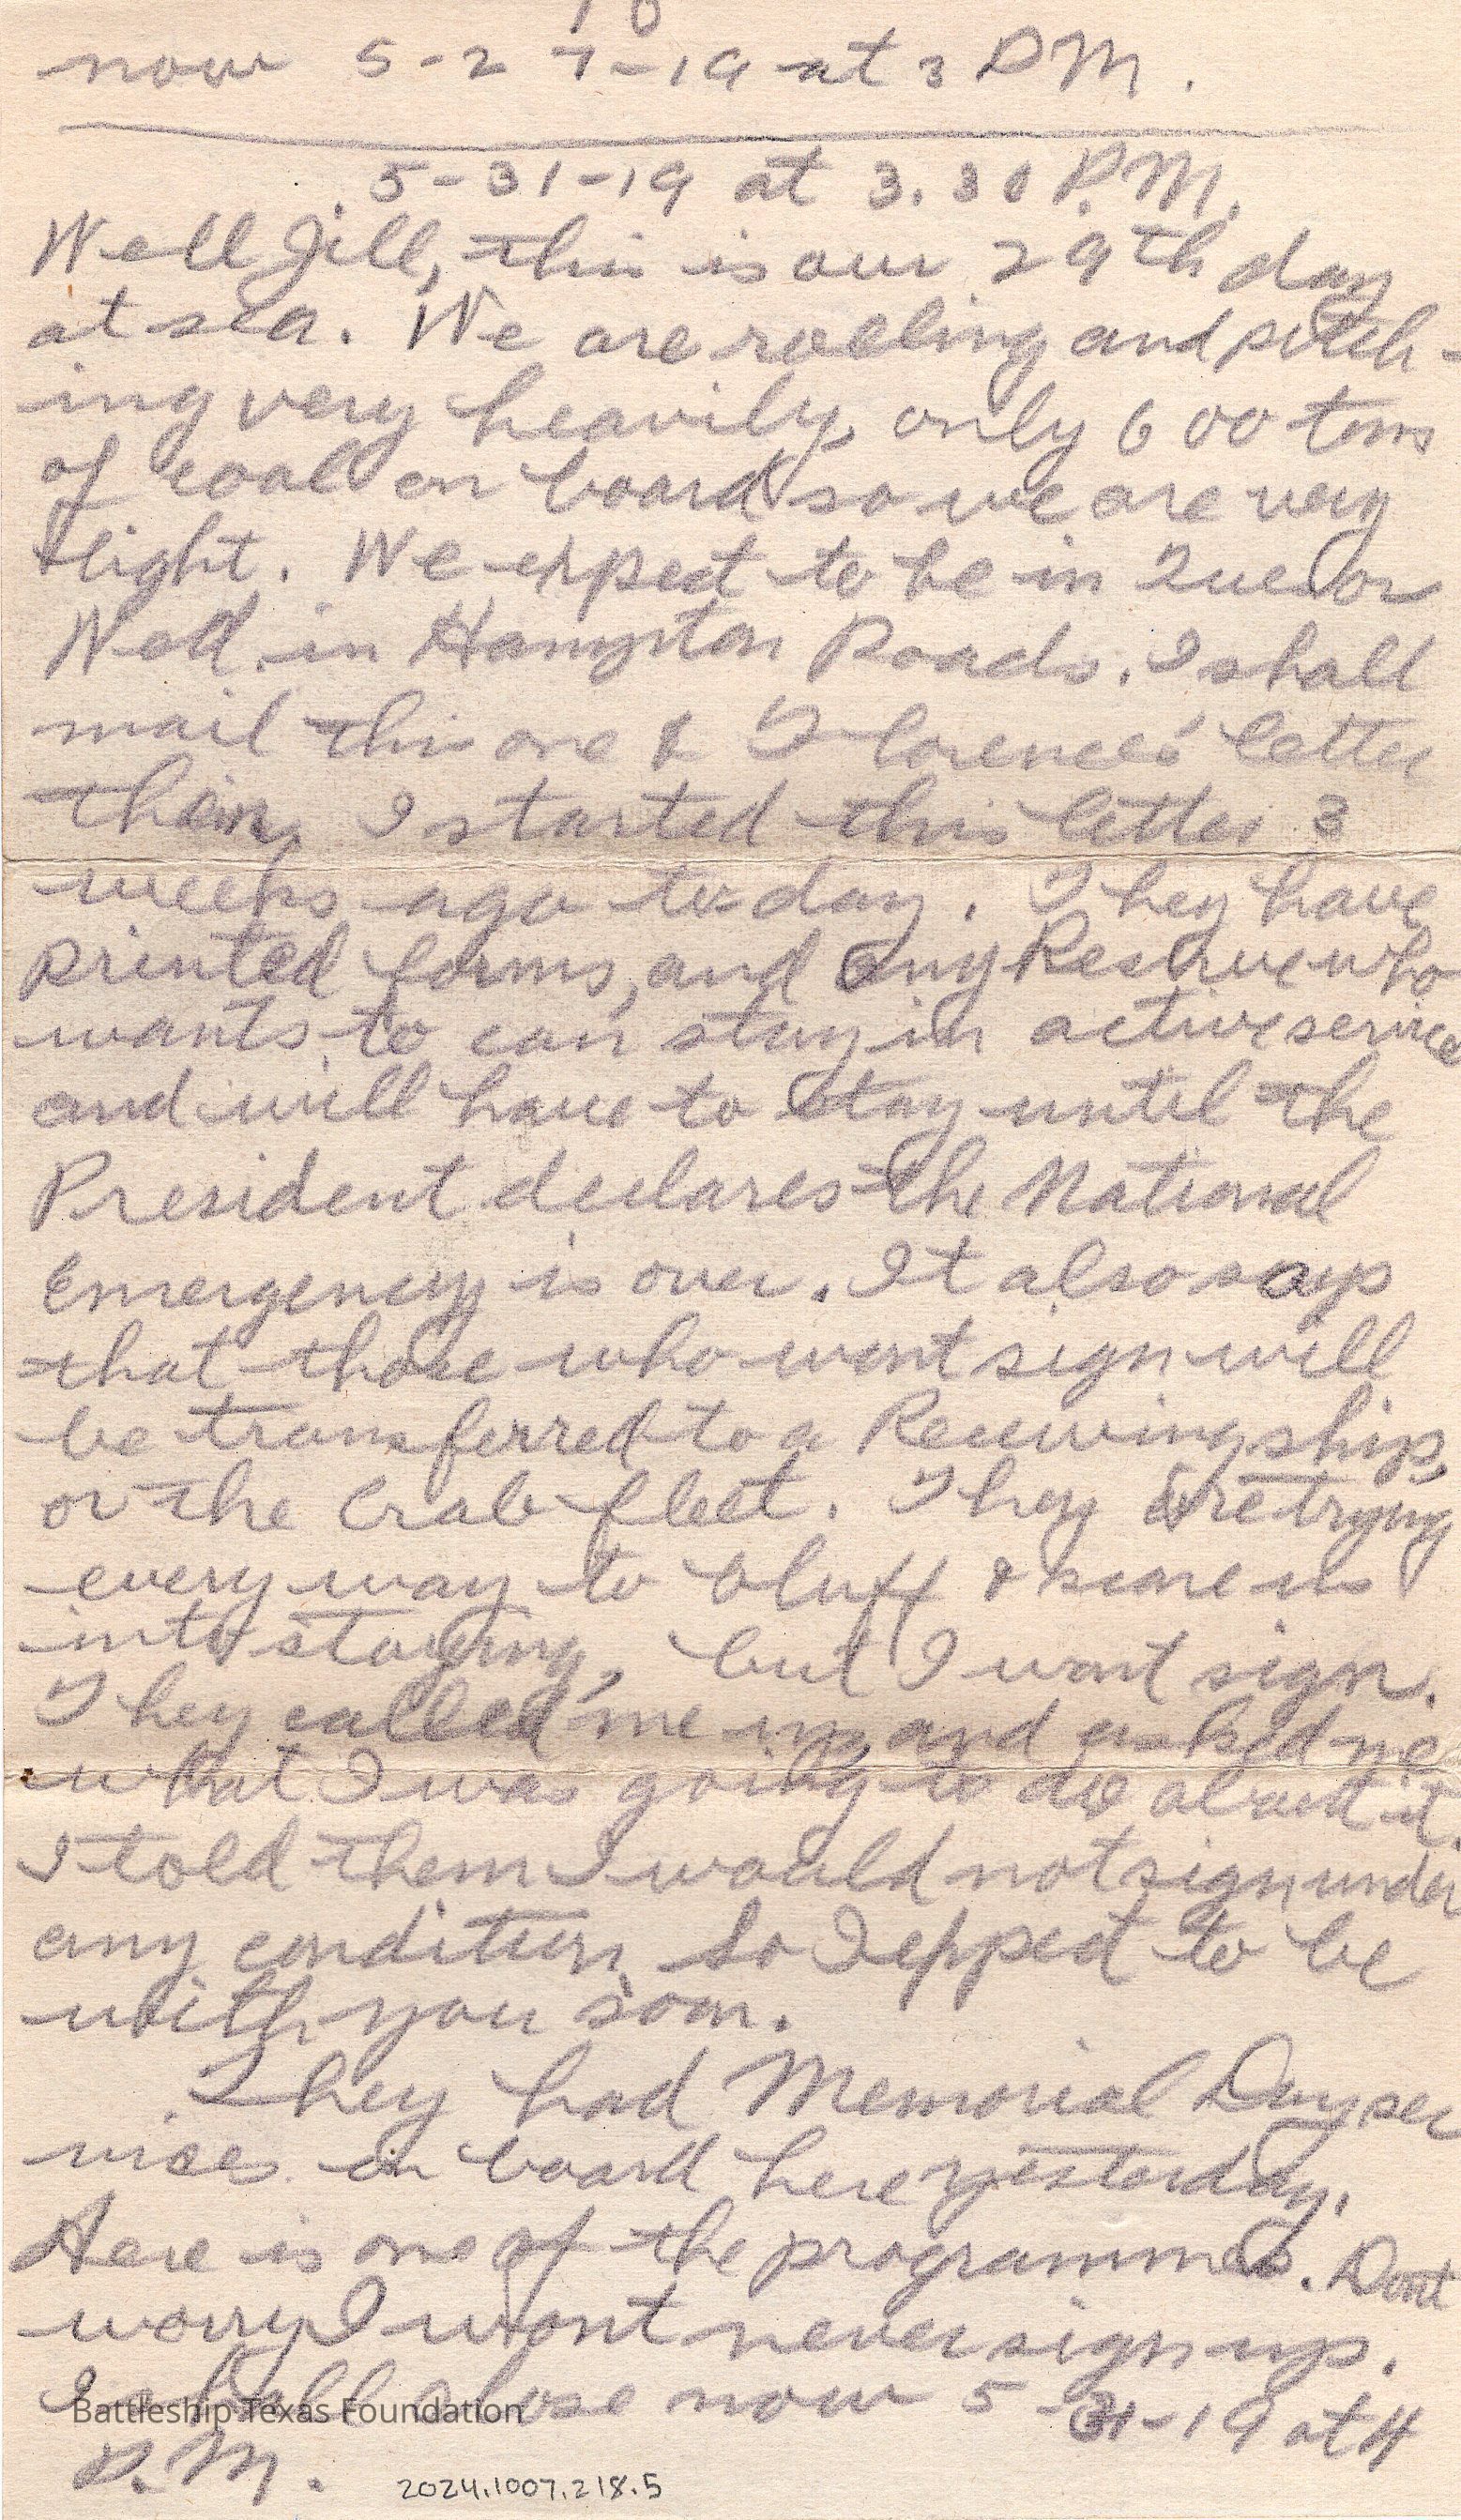 10
now 5-27-19 at 3 P.M.
5-31-19 at 3.30 P.M.
Well Jill, this is our 29th day
at sea. We are rolling and pitch-
ing very heavily, only 600 tons
of coal on board so we are very
light. We expect to be in Tues or
Wed. in Hampton Roads. I shall
mail this one & Florence's letter
then. I started this letter 3
weeks ago to-day. They have
printed forms, and any Reserve who
wants to can stay in active service
and will have to stay until the
President declares the National
Emergency is over. It also says
that those who wont sign will
be transferred to a Receiving ship,
or the Crab fleet. They are trying
every way to bluff & scare us
into staying, but I wont sign.
They called me up and asked me
what I was going to do about it.
I told them I would not sign under
any condition. So I expect to be
with you soon.
They had Memorial Day ser
vices on board here yesterday.
Here is one of the programmes. Dont
worry I wont never sign up.
I shall close now 5-31-19 at 4
P.M.
Battleship Texas Foundation
2024.1007.218.5